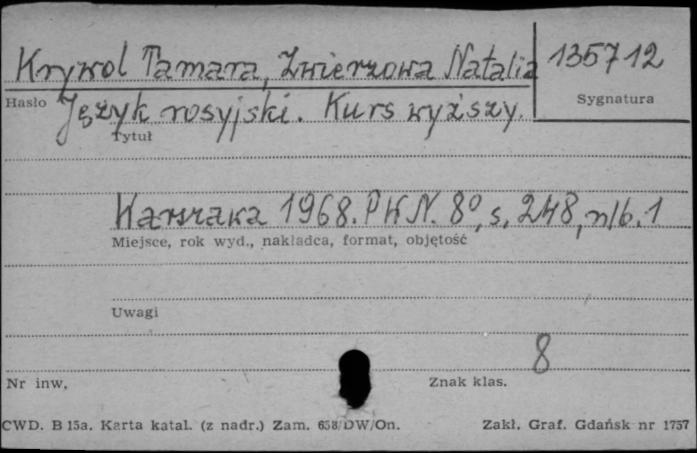 Krywol Tamara, Zwierzowa Natalia 135712
Hasło Sygnatura
Język rosyjski. Kurs wyższy.
Tytuł
Warszawa 1968. PWN. 8°, s. 248, nlb. 1
Miejsce, rok wyd., nakładca, format, objętość
Uwagi
8
Nr inw. Znak klas.
CWD. B 15a. Karta katal. (z nadr.) Zam. 658/DW/On. Zakł. Graf. Gdańsk nr 1757